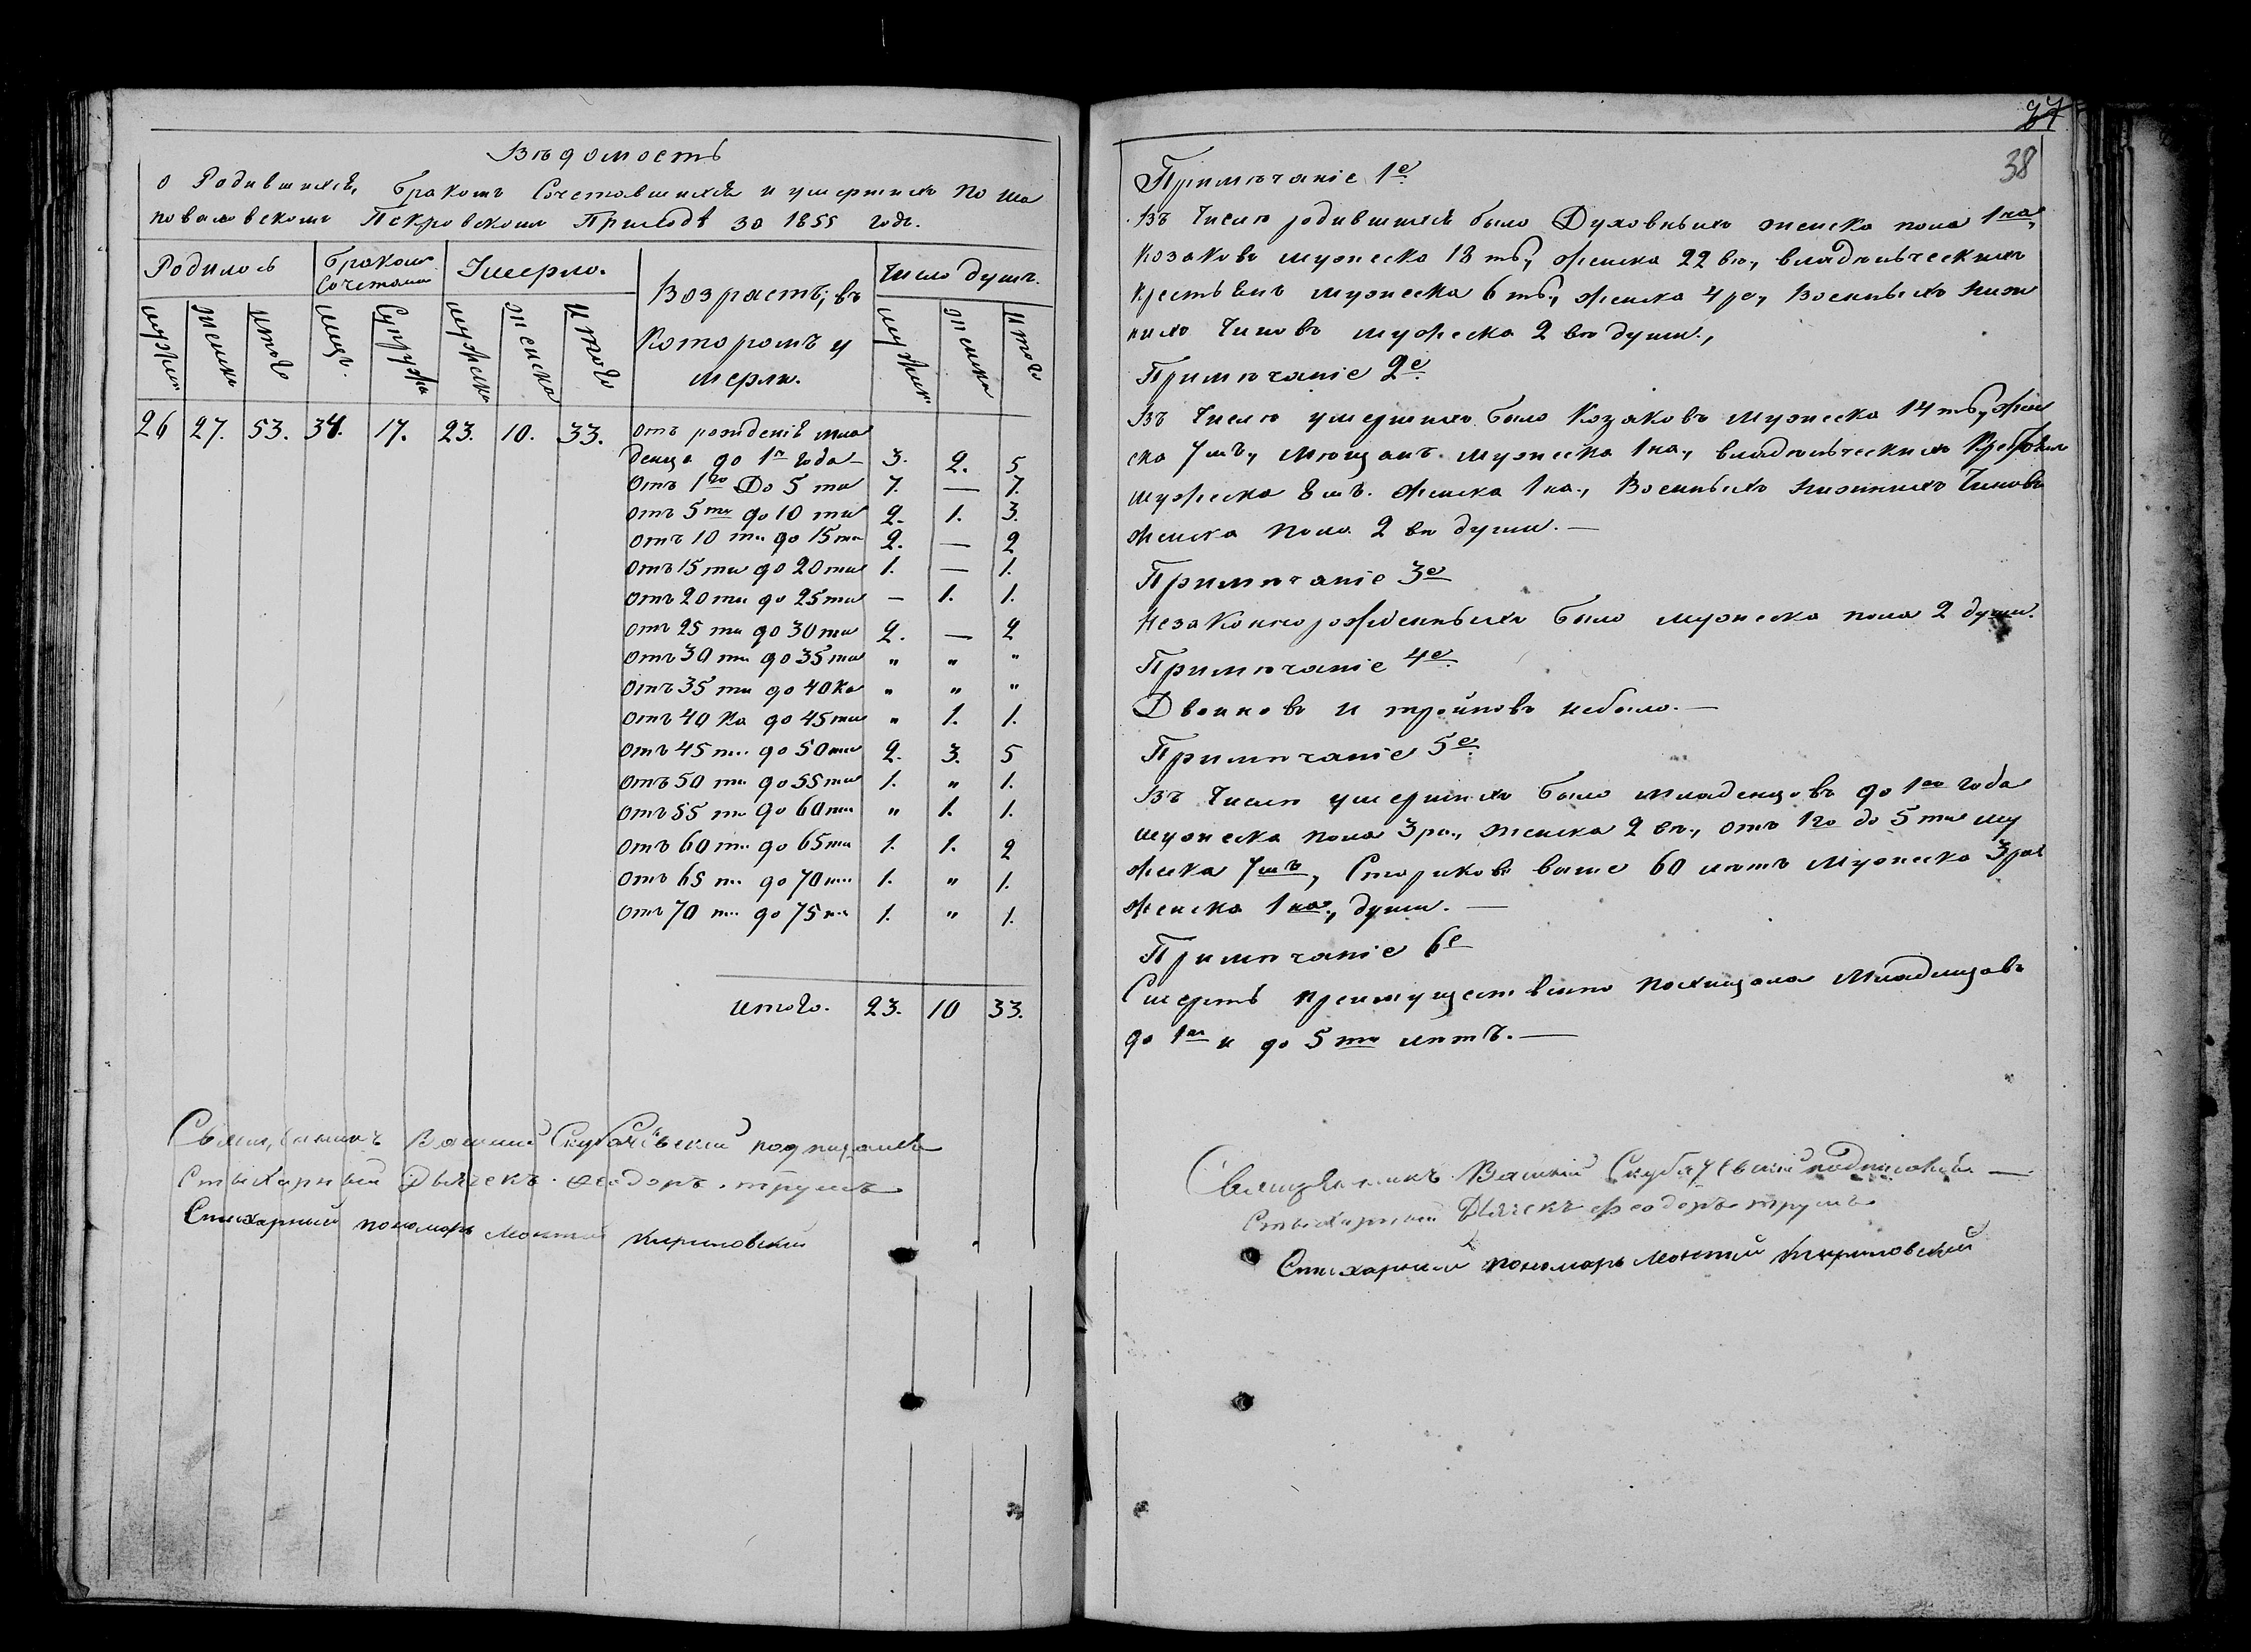 Вѣдомость
о Родившихся, бракомъ Сочетавшихся и умершихъ по Ша
поваловскомъ Покровскомъ Приходѣ за 1855 годъ.
Родилось
Бракомъ Сочетали
Умерло.
Возрастъ, въ
Которомъ у
мерли.
Число душъ.
мужес.
женска
Итого
лицъ.
Супруж
мужеска
женска
Итого
мужеск
женска
Итого
26 27. 53. 34. 17. 23. 10. 33.
отъ рожденія мла
денца до 1го года 3. 2. 5
отъ 1го До 5 ти 7. — 7.
отъ 5ти до 10 ти 2. 1. 3.
отъ 10 ти до 15ти 2. — 2
отъ 15 ти до 20 ти 1. — 1.
отъ 20 ти до 25 ти — 1. 1.
отъ 25 ти до 30 ти 2. — 2
отъ 30 ти до 35 ти " " "
отъ 35 ти до 40ка " " "
отъ 40 ка до 45 ти " 1. 1.
отъ 45 ти до 50 ти 2. 3. 5
отъ 50 ти до 55 ти 1. " 1.
отъ 55 ти до 60 ти " 1. 1.
отъ 60 ти до 65 ти 1. 1. 2
отъ 65 ти до 70 ти 1. " 1.
отъ 70 ти до 75 ти 1. " 1.
итого. 23. 10 33.
Священникъ Скубачевский подписался
Стихарный Дьячекъ Ѳеодоръ
Стихарный пономарь Кириловский
37
38
Примѣчаніе 1е
Въ Числѣ родившихся было Духовныхъ женска пола 1на,
козаковъ мужеска 18 ть, женска 22 вѣ, владѣльческихъ
крестьянъ мужеска 6 ть, женска 4 ре, Военныхъ Ниж
нихъ Чиновъ мужеска 2 вѣ души,
Примѣчаніе 2е
Въ Числѣ умершихъ было Козаковъ мужеска 14 ть, жен
ска 7 мъ, мѣщанъ мужеска 1на, владѣльческихъ Крестьянъ
мужеска 8 мъ. женска 1на, Военныхъ Нижнихъ Чиновъ
женска пола 2 вѣ души. —
Примѣчаніе 3е
Незаконнорожденныхъ было мужеска пола 2 души.
Примѣчаніе 4е
Двойновъ и тройновъ небыло. —
Примѣчаніе 5е
Въ Числѣ умершихъ было младенцовъ до 1го года
мужеска пола 3 ри, женска 2 вѣ, отъ 1го до 5 ти му
жска 7мъ, Стариковъ выше 60 лѣтъ мужеска 3 ри
женска 1на, души. —
Примѣчаніе 6е
Смерть преимущественно похищала Младенцовъ
до 1го и до 5ти лѣтъ. —
Священникъ Скубачевский подписался —
Стихарный Дьячекъ Феодоръ
Стихарный пономарь Кириловский